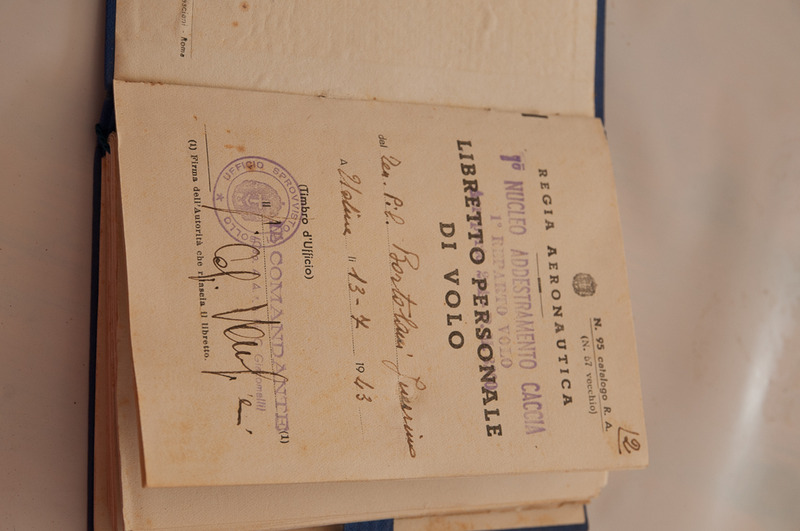 12
N. 95 catalogo R. A.
(N. 67 vecchio)
REGIA AERONAUTICA
1° NUCLEO ADDESTRAMENTO CACCIA
1° REPARTO VOLO
LIBRETTO PERSONALE
DI VOLO
del Ten. Pil. Bortolani Guerrino
A Udine li 13-7 1943
(Timbro d'Ufficio)
IL COMANDANTE (1)
UFFICIO SPROVVISTO BOLLO
(1) Firma dell'Autorità che rilascia il libretto.
- Roma